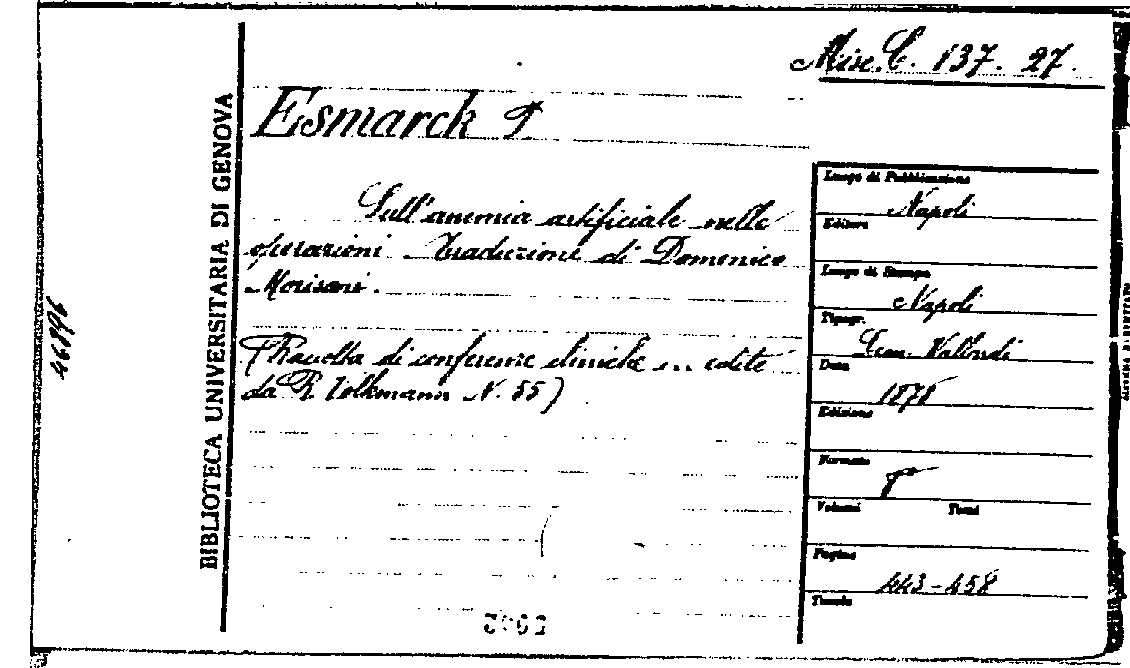 Misc. C. 137. 27.
Esmarck F
Sull'anemia artificiale nelle
operazioni Traduzione di Domenico
Morisani.
(Raccolta di conferenze cliniche ... edite
da R. Volkmann N. 55)
BIBLIOTECA UNIVERSITARIA DI GENOVA
46896
Luogo di Pubblicazione
Napoli
Editore
Luogo di Stampa
Napoli
Tipogr.
Data
1878
Edizione
Formato
8°
Volumi Tomi
Pagine
443-458
Tavole